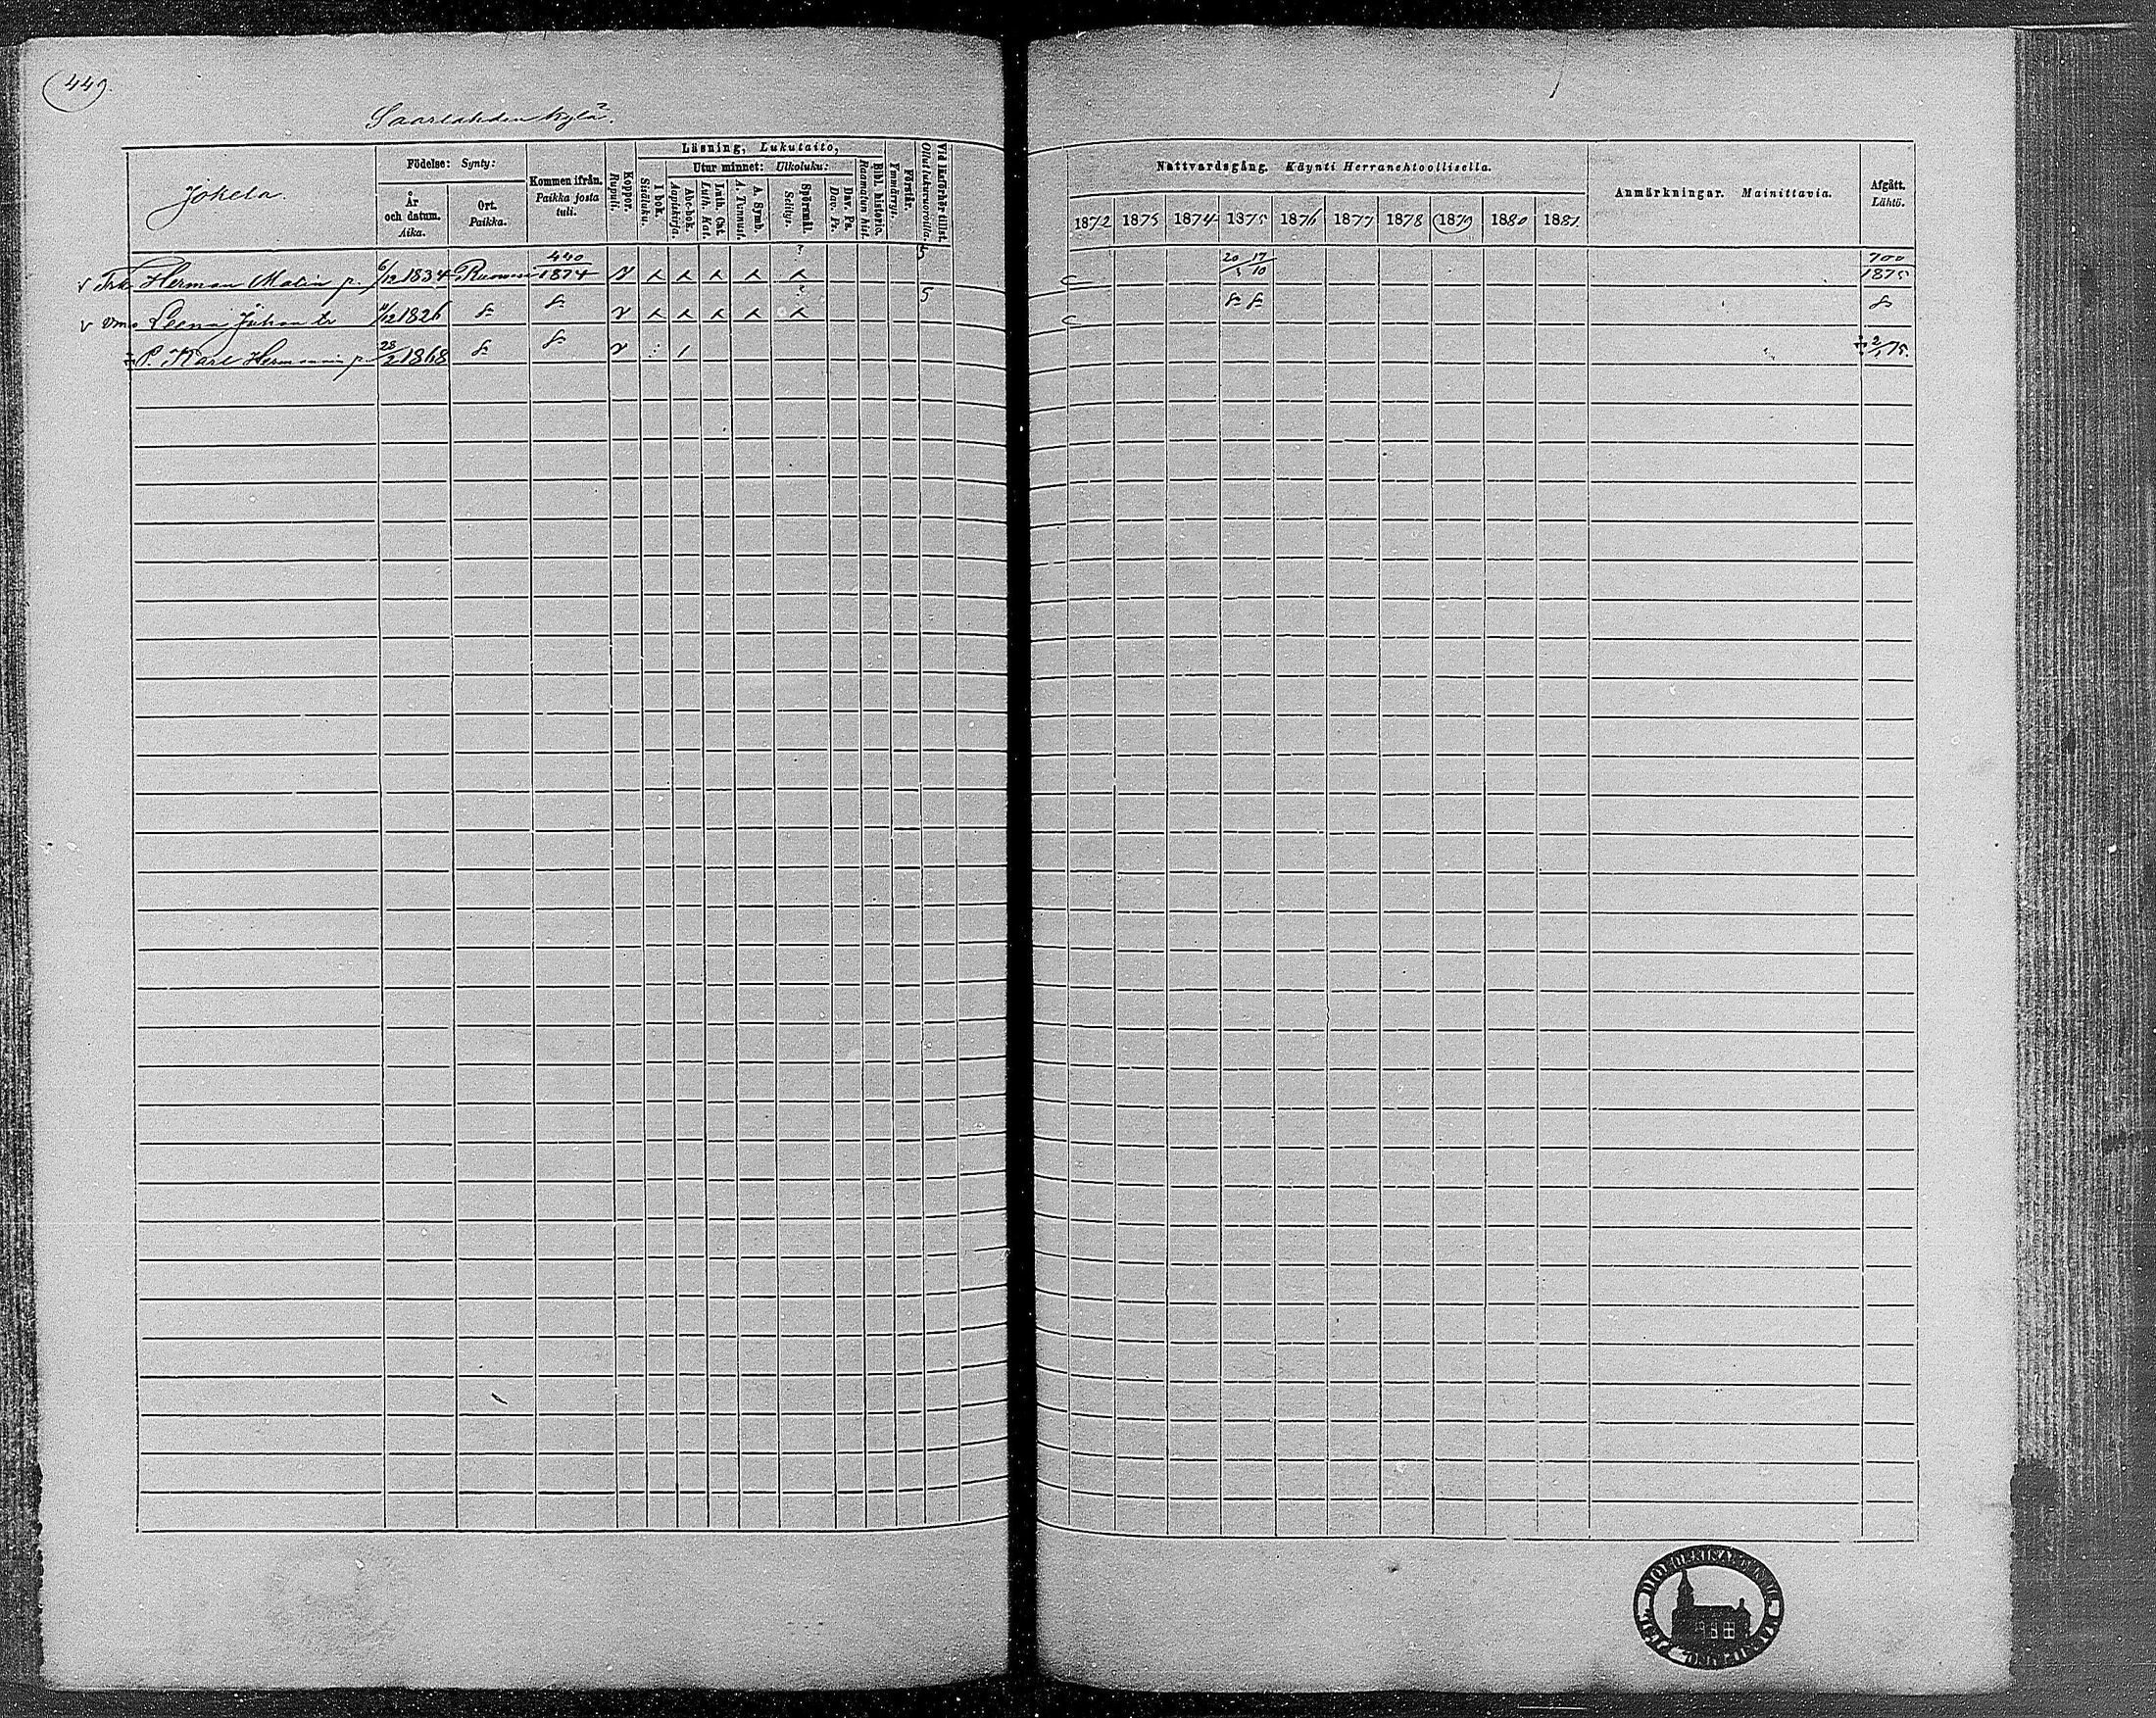 449.
Saarlahden kylä.
Jokela.
Födelse: Synty:
År och datum. Aika.
Ort. Paikka.
Kommen ifrån. Paikka josta tuli.
Koppor. Ruppuli.
Läsning, Lukutaito,
I bok. Sisäluku.
Utur minnet: Ulkoluku:
Abc-bok. Aapiskirja.
Luth. Cat. Luth. Kat.
A. Symb. A. Tunnust.
Spörsmål. Selitys.
Dav. Ps. Dav. Ps.
Bibl. historia. Raamatun hist.
Förstår. Ymmärrys.
Vid läsförhör tillst. Ollut lukuvuoroilla.
Nattvardsgång. Käynti Herranehtoollisella.
1872 1875 1874 1875 1876 1877 1878 1879 1880 1881
Anmärkningar. Mainittavia.
Afgått. Lähtö.
v Herman Matin p. 6/12 1834 440/1874 5 20/5 17/10 700/1875
v Leena Juhon tr 11/12 1826 5
P. Karl Hermannin p. 28/2 1868 † 2/1 75.